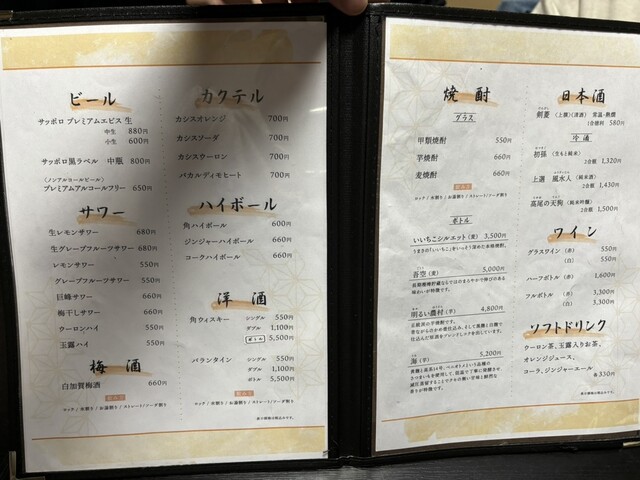 ビール
サッポロ プレミアムエビス 生
中生 880円
小生 600円
サッポロ黒ラベル 中瓶 800円
(ノンアルコールビール)
プレミアムアルコールフリー 650円
サワー
生レモンサワー 680円
生グレープフルーツサワー 680円
レモンサワー 550円
グレープフルーツサワー 550円
巨峰サワー 660円
梅干しサワー 660円
ウーロンハイ 550円
玉露ハイ 550円
梅酒
白加賀梅酒 660円
ロック / 水割り / お湯割り / ストレート / ソーダ割り
カクテル
カシスオレンジ 700円
カシスソーダ 700円
カシスウーロン 700円
バカルディモヒート 700円
ハイボール
角ハイボール 600円
ジンジャーハイボール 660円
コークハイボール 660円
洋酒
角ウィスキー シングル 550円
ダブル 1,100円
ボトル 5,500円
バランタイン シングル 550円
ダブル 1,100円
ボトル 5,500円
飲み方
ロック / 水割り / お湯割り / ストレート / ソーダ割り
表示価格は税込みです。
焼酎
グラス
甲類焼酎 550円
芋焼酎 660円
麦焼酎 660円
飲み方
ロック / 水割り / お湯割り / ストレート / ソーダ割り
ボトル
いいちこシルエット(麦) 3,500円
うまさの「いいちこ」をいっそう深めた本格焼酎。
吾空(麦) 5,000円
長期樽貯蔵ならではのまろやかで伸びのある
味わいが特徴です。
明るい農村(芋) 4,800円
海(芋) 5,200円
日本酒
剣菱 (上撰)(清酒) 常温・熱燗
1合徳利 580円
冷酒
初孫 (生もと純米)
2合瓶 1,320円
上選 風水人 (純米酒)
2合瓶 1,430円
高尾の天狗 (純米吟醸)
2合瓶 1,500円
ワイン
グラスワイン (赤) 550円
(白) 550円
ハーフボトル (赤) 1,600円
フルボトル (赤) 3,300円
(白) 3,300円
ソフトドリンク
ウーロン茶、玉露入りお茶、
オレンジジュース、
コーラ、ジンジャーエール 各330円
表示価格は税込みです。